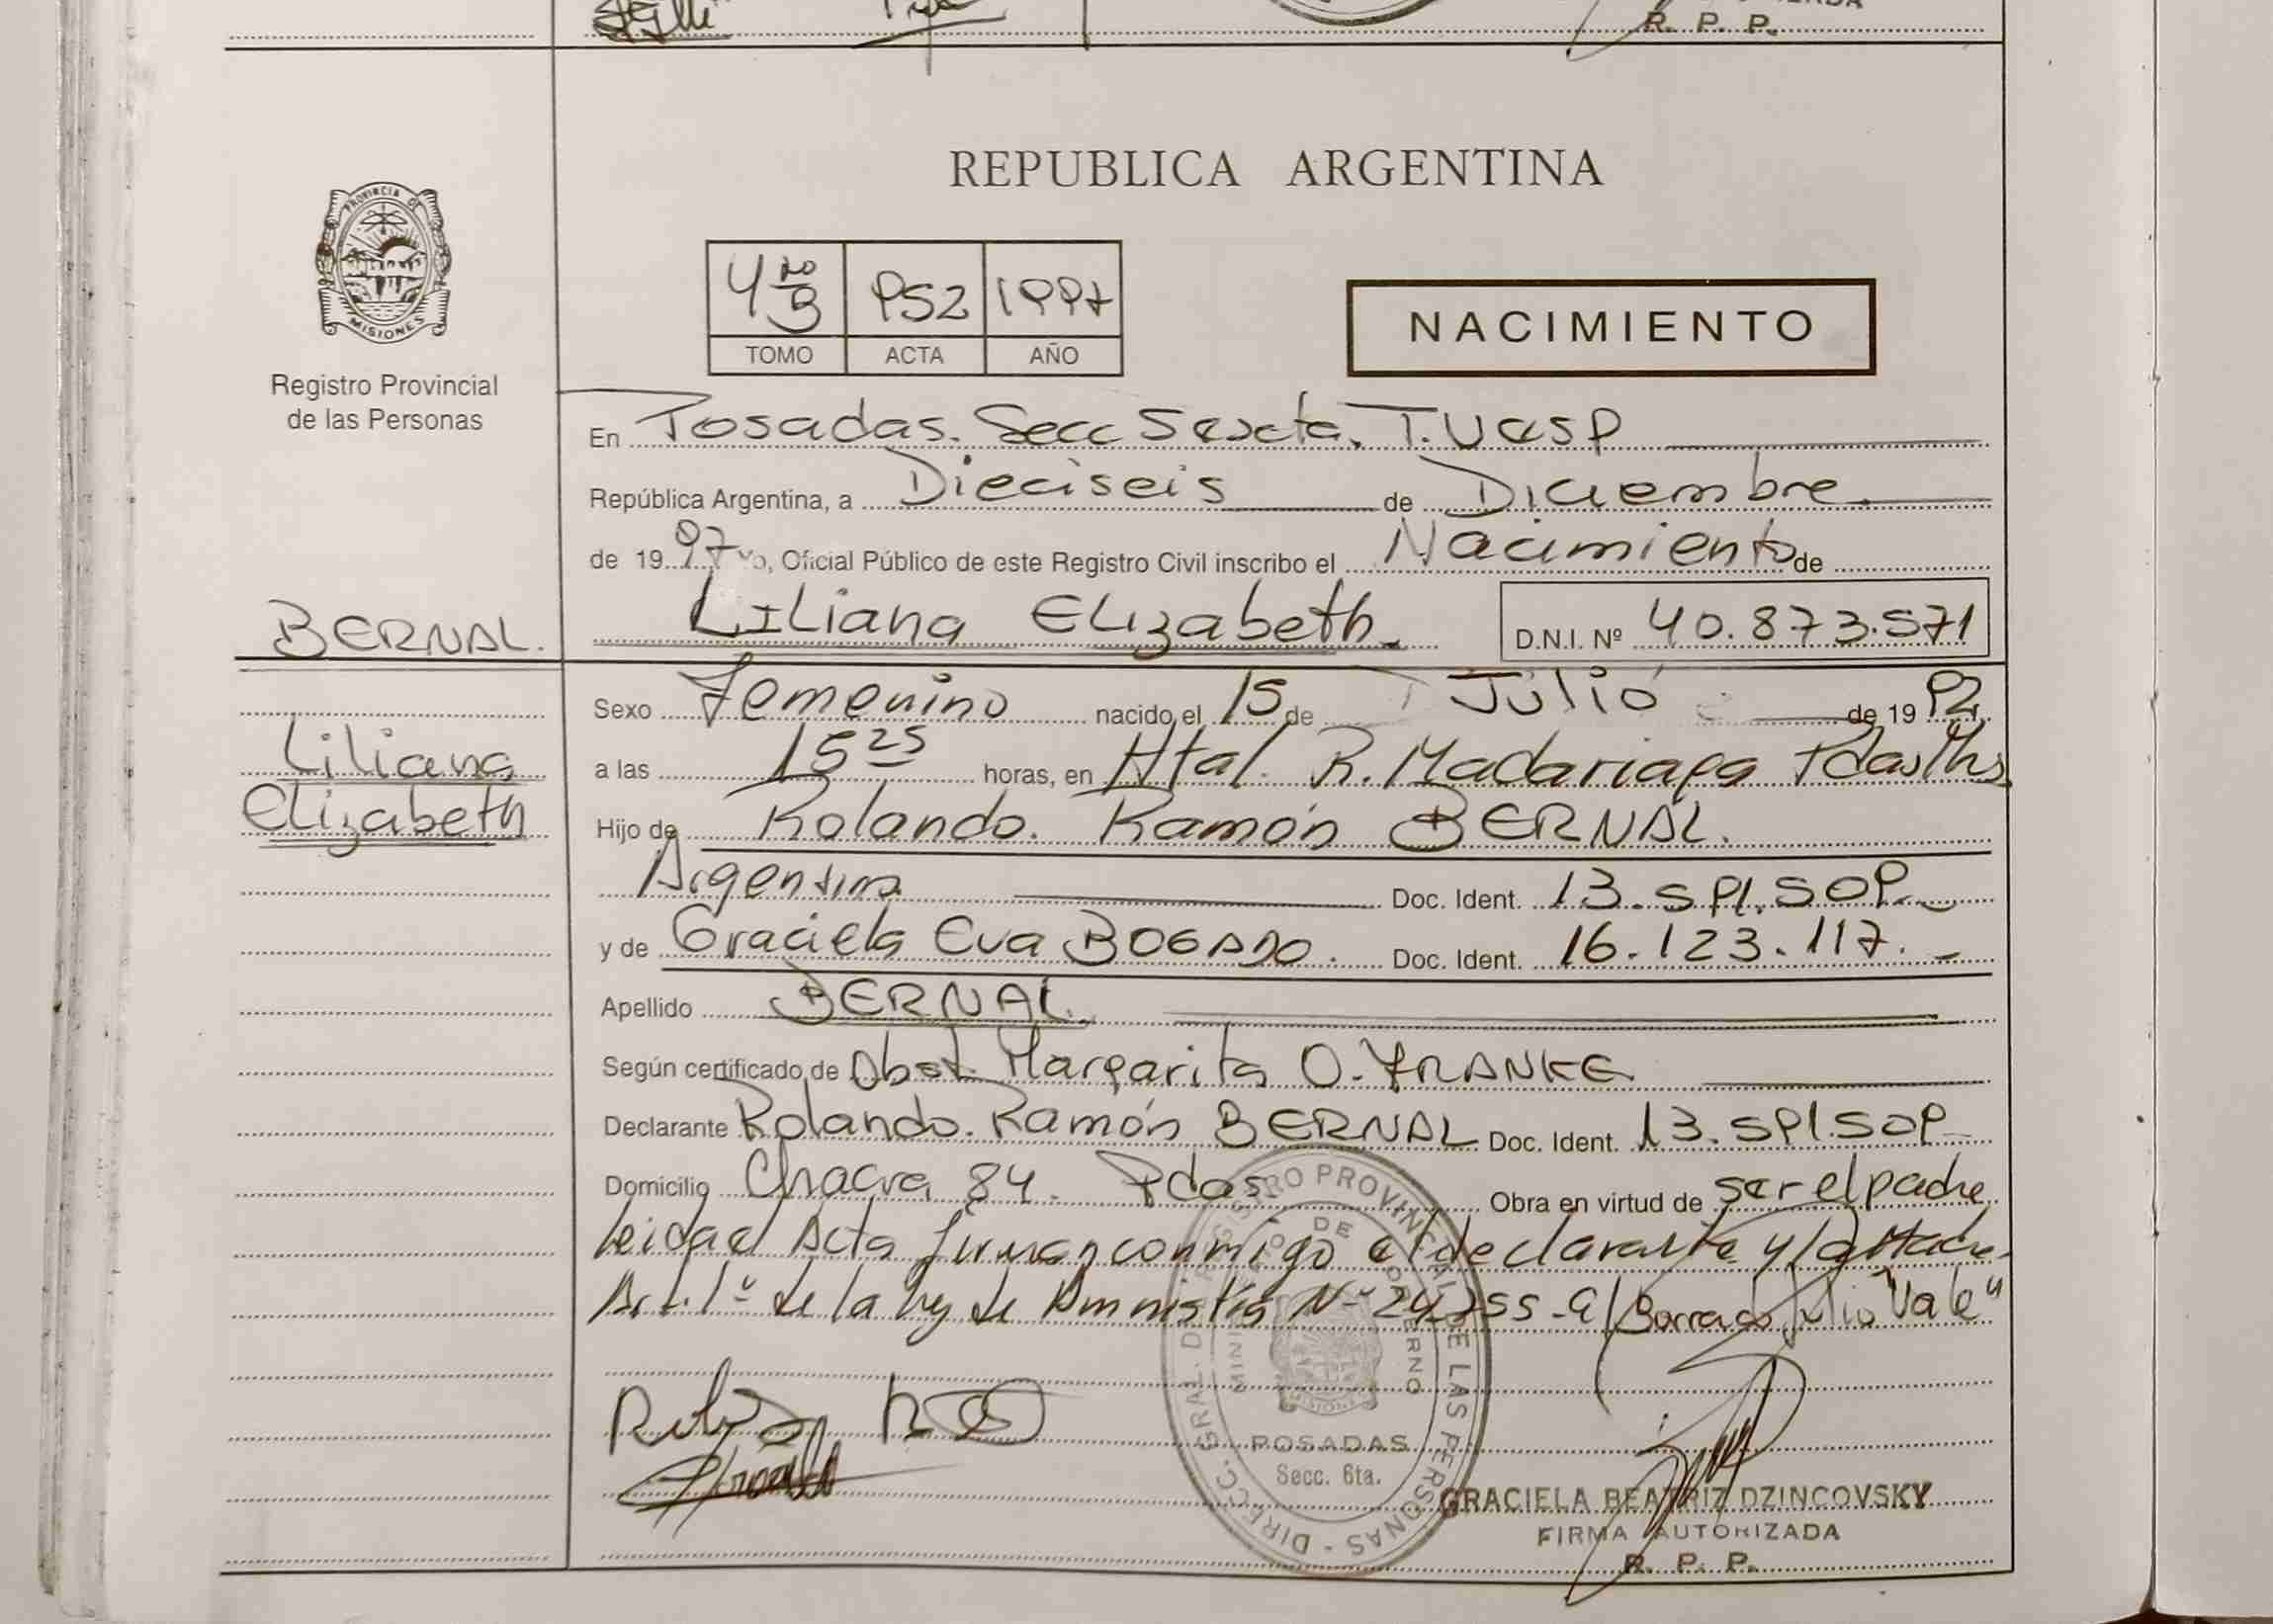 R. P. P.
REPUBLICA ARGENTINA
PROVINCIA DE MISIONES
Registro Provincial
de las Personas
4to B 952 1997
TOMO ACTA AÑO
NACIMIENTO
En Posadas. Secc Sexta. T.
República Argentina, a Dieciseis de Diciembre.
de 1997 Yo, Oficial Público de este Registro Civil inscribo el Nacimiento de
BERNAL. Liliana Elizabeth. D.N.I. Nº 40.873.571
Sexo Femenino nacido el 15 de Julio de 1992
Liliana a las 15 25 horas, en Htal. R. Madariaga Pdas Mns
Elizabeth Hijo de Rolando. Ramón BERNAL.
Argentina Doc. Ident. 13.591.509
y de Graciela Eva BOGADO. Doc. Ident. 16.123.117.
Apellido BERNAL
Según certificado de Obst. Margarita O. FRANKE
Declarante Rolando. Ramón BERNAL Doc. Ident. 13.591.509
Domicilio Chacra 84. Pdas Obra en virtud de ser el padre
Leida el Acta firman conmigo el declarante y la Madre.
Art. 1º de la ley de Amnistia Nº 24.755 - E/Borrado Julio "Vale"
DIRECC. GRAL. DE REGISTRO PROVINCIAL DE LAS PERSONAS
MINISTERIO DE GOBIERNO
POSADAS
Secc. 6ta.
GRACIELA BEATRIZ DZINCOVSKY
FIRMA AUTORIZADA
R. P. P.